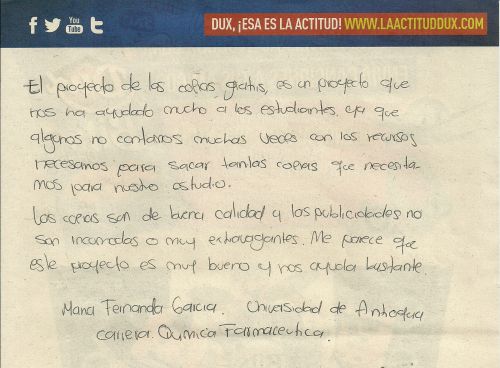 You
Tube
DUX, ¡ESA ES LA ACTITUD! WWW.LAACTITUDDUX.COM
El proyecto de las copias gratis, es un proyecto que
nos ha ayudado mucho a los estudiantes, ya que
algunos no contamos muchas veces con los recursos
necesarios para sacar tantas copias que necesita-
mos para nustro estudio.
Las copias son de buena calidad y las publicidades no
son incomodas o muy extravagantes. Me parece que
este proyecto es muy bueno y nos ayuda bastante.
Maria Fernanda Garcia. Universidad de Antioquia
Carrera. Química Farmaceutica.